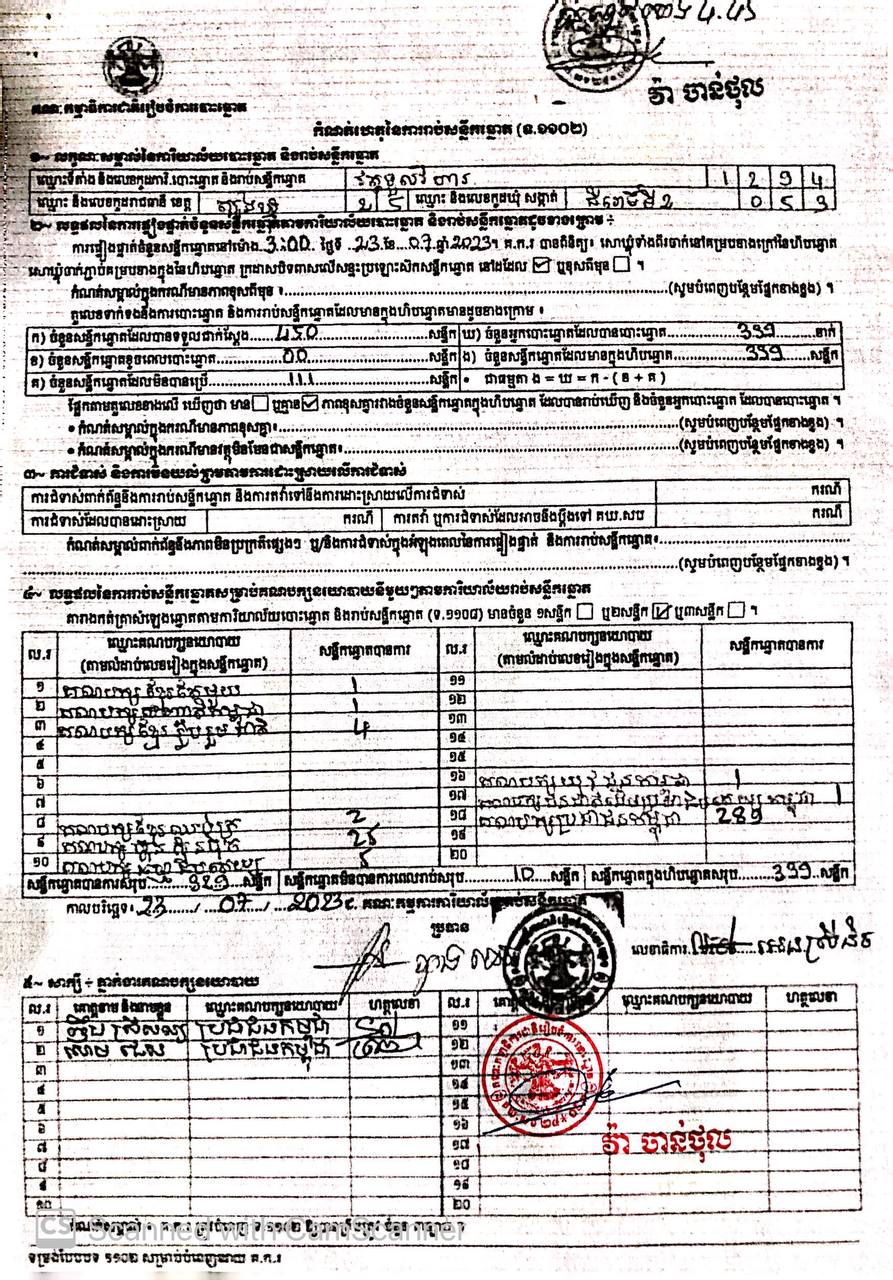 វ៉ា ចាន់ថុល
គណៈកម្មាធិការជាតិរៀបចំការបោះឆ្នោត
កំណត់ហេតុនៃការរាប់សន្លឹកឆ្នោត (ទ.១១០២)
១~ លក្ខណៈសម្គាល់នៃការិយាល័យបោះឆ្នោត និងរាប់សន្លឹកឆ្នោត
ឈ្មោះទីតាំង និងលេខកូដការិ.បោះឆ្នោត និងរាប់សន្លឹកឆ្នោត 1 2 9 4
ឈ្មោះ និងលេខកូដរាជធានី ខេត្ត ត្បូងឃ្មុំ 2 5 ឈ្មោះ និងលេខកូដឃុំ សង្កាត់ 0 5 9
២~ លទ្ធផលនៃការផ្ទៀងផ្ទាត់ចំនួនសន្លឹកឆ្នោតតាមការិយាល័យបោះឆ្នោត និងរាប់សន្លឹកឆ្នោតដូចខាងក្រោម ÷
ការផ្ទៀងផ្ទាត់ចំនួនសន្លឹកឆ្នោតនៅម៉ោង 3:00 ថ្ងៃទី 23 ខែ 07 ឆ្នាំ 2023។ គ.ក.រ បានពិនិត្យ៖ សោឃ្មុំទាំងពីរចាក់នៅគម្របខាងក្រៅនៃហិបឆ្នោត
សោឃ្មុំចាក់ភ្ជាប់គម្របខាងក្នុងនៃហិបឆ្នោត ក្រដាសបិទពាសលើសន្ទះប្រឡោះសិកសន្លឹកឆ្នោត នៅដដែល ☑ ឬខុសពីមុន ☐ ។
កំណត់សម្គាល់ក្នុងករណីមានភាពខុសពីមុន ៖ (សូមបំពេញបន្ថែមផ្នែកខាងខ្នង) ។
តួលេខទាក់ទងនឹងការបោះឆ្នោត និងការរាប់សន្លឹកឆ្នោតដែលមានក្នុងហិបឆ្នោតមានដូចខាងក្រោម ៖
ក) ចំនួនសន្លឹកឆ្នោតដែលបានទទួលជាក់ស្តែង 450 សន្លឹក ឃ) ចំនួនអ្នកបោះឆ្នោតដែលបានបោះឆ្នោត 339 នាក់
ខ) ចំនួនសន្លឹកឆ្នោតខូចពេលបោះឆ្នោត 00 សន្លឹក ង) ចំនួនសន្លឹកឆ្នោតដែលមានក្នុងហិបឆ្នោត 339 សន្លឹក
គ) ចំនួនសន្លឹកឆ្នោតដែលមិនបានប្រើ 111 សន្លឹក • ជាធម្មតា ង = ឃ = ក - ( ខ + គ )
ផ្អែកតាមតួលេខខាងលើ ឃើញថា មាន ☐ ឬគ្មាន ☑ ភាពខុសគ្នារវាងចំនួនសន្លឹកឆ្នោតក្នុងហិបឆ្នោត ដែលបានរាប់ឃើញ និងចំនួនអ្នកបោះឆ្នោត ដែលបានបោះឆ្នោត ។
• កំណត់សម្គាល់ក្នុងករណីមានភាពខុសគ្នា៖ (សូមបំពេញបន្ថែមផ្នែកខាងខ្នង) ។
• កំណត់សម្គាល់ក្នុងករណីមានវត្ថុមិនមែនជាសន្លឹកឆ្នោត៖ (សូមបំពេញបន្ថែមផ្នែកខាងខ្នង) ។
៣~ ការជំទាស់ និងការមិនយល់ព្រមតាមការដោះស្រាយលើការជំទាស់
ការជំទាស់ពាក់ព័ន្ធនឹងការរាប់សន្លឹកឆ្នោត និងការតវ៉ាទៅនឹងការដោះស្រាយលើការជំទាស់ ករណី
ការជំទាស់ដែលបានដោះស្រាយ ករណី ការតវ៉ា ឬការជំទាស់ដែលអាចនឹងប្តឹងទៅ គឃ.សប ករណី
កំណត់សម្គាល់ពាក់ព័ន្ធនឹងភាពមិនប្រក្រតីផ្សេងៗ ឬ/និងការជំទាស់ក្នុងអំឡុងពេលនៃការផ្ទៀងផ្ទាត់ និងការរាប់សន្លឹកឆ្នោត៖
(សូមបំពេញបន្ថែមផ្នែកខាងខ្នង) ។
៤~ លទ្ធផលនៃការរាប់សន្លឹកឆ្នោតសម្រាប់គណបក្សនយោបាយនីមួយៗតាមការិយាល័យរាប់សន្លឹកឆ្នោត
តារាងកត់ត្រាសំឡេងឆ្នោតតាមការិយាល័យបោះឆ្នោត និងរាប់សន្លឹកឆ្នោត (ទ.១១០៨) មានចំនួន ១សន្លឹក ☐ ឬ២សន្លឹក ☑ ឬ៣សន្លឹក ☐ ។
ល.រ ឈ្មោះគណបក្សនយោបាយ (តាមលំដាប់លេខរៀងក្នុងសន្លឹកឆ្នោត) សន្លឹកឆ្នោតបានការ ល.រ ឈ្មោះគណបក្សនយោបាយ (តាមលំដាប់លេខរៀងក្នុងសន្លឹកឆ្នោត) សន្លឹកឆ្នោតបានការ
១ គណបក្ស ខ្មែរតែមួយ 1 ១១
២ គណបក្ស 1 ១២
៣ គណបក្ស ខ្មែររួបរួមជាតិ 4 ១៣
៤ ១៤
៥ ១៥
៦ ១៦ គណបក្ស យុវជនកម្ពុជា 1
៧ ១៧ គណបក្ស 1
៨ គណបក្ស 2 ១៨ គណបក្សប្រជាជនកម្ពុជា 289
៩ គណបក្ស ហ្វ៊ុនស៊ិនប៉ិច 25 ១៩
១០ គណបក្ស 5 ២០
សន្លឹកឆ្នោតបានការសរុប 329 សន្លឹក សន្លឹកឆ្នោតមិនបានការពេលរាប់សរុប 10 សន្លឹក សន្លឹកឆ្នោតក្នុងហិបឆ្នោតសរុប 339 សន្លឹក
កាលបរិច្ឆេទ 23 / 07 / 2023 គណៈកម្មការការិយាល័យរាប់សន្លឹកឆ្នោត
ប្រធាន
លេខាធិការ
៥~ សាក្សី ÷ ភ្នាក់ងារគណបក្សនយោបាយ
ល.រ គោត្តនាម និងនាមខ្លួន ឈ្មោះគណបក្សនយោបាយ ហត្ថលេខា ល.រ ឈ្មោះគណបក្សនយោបាយ ហត្ថលេខា
១ ប្រជាជនកម្ពុជា ១១
២ ប្រជាជនកម្ពុជា ១២
៣ ១៣
៤ ១៤
៥ ១៥
៦ ១៦
៧ ១៧
៨ ១៨
៩ ១៩
១០ ២០
វ៉ា ចាន់ថុល
CS Scanned with CamScanner
ទម្រង់បែបបទ ១១០២ សម្រាប់បំពេញដោយ គ.ក.រ